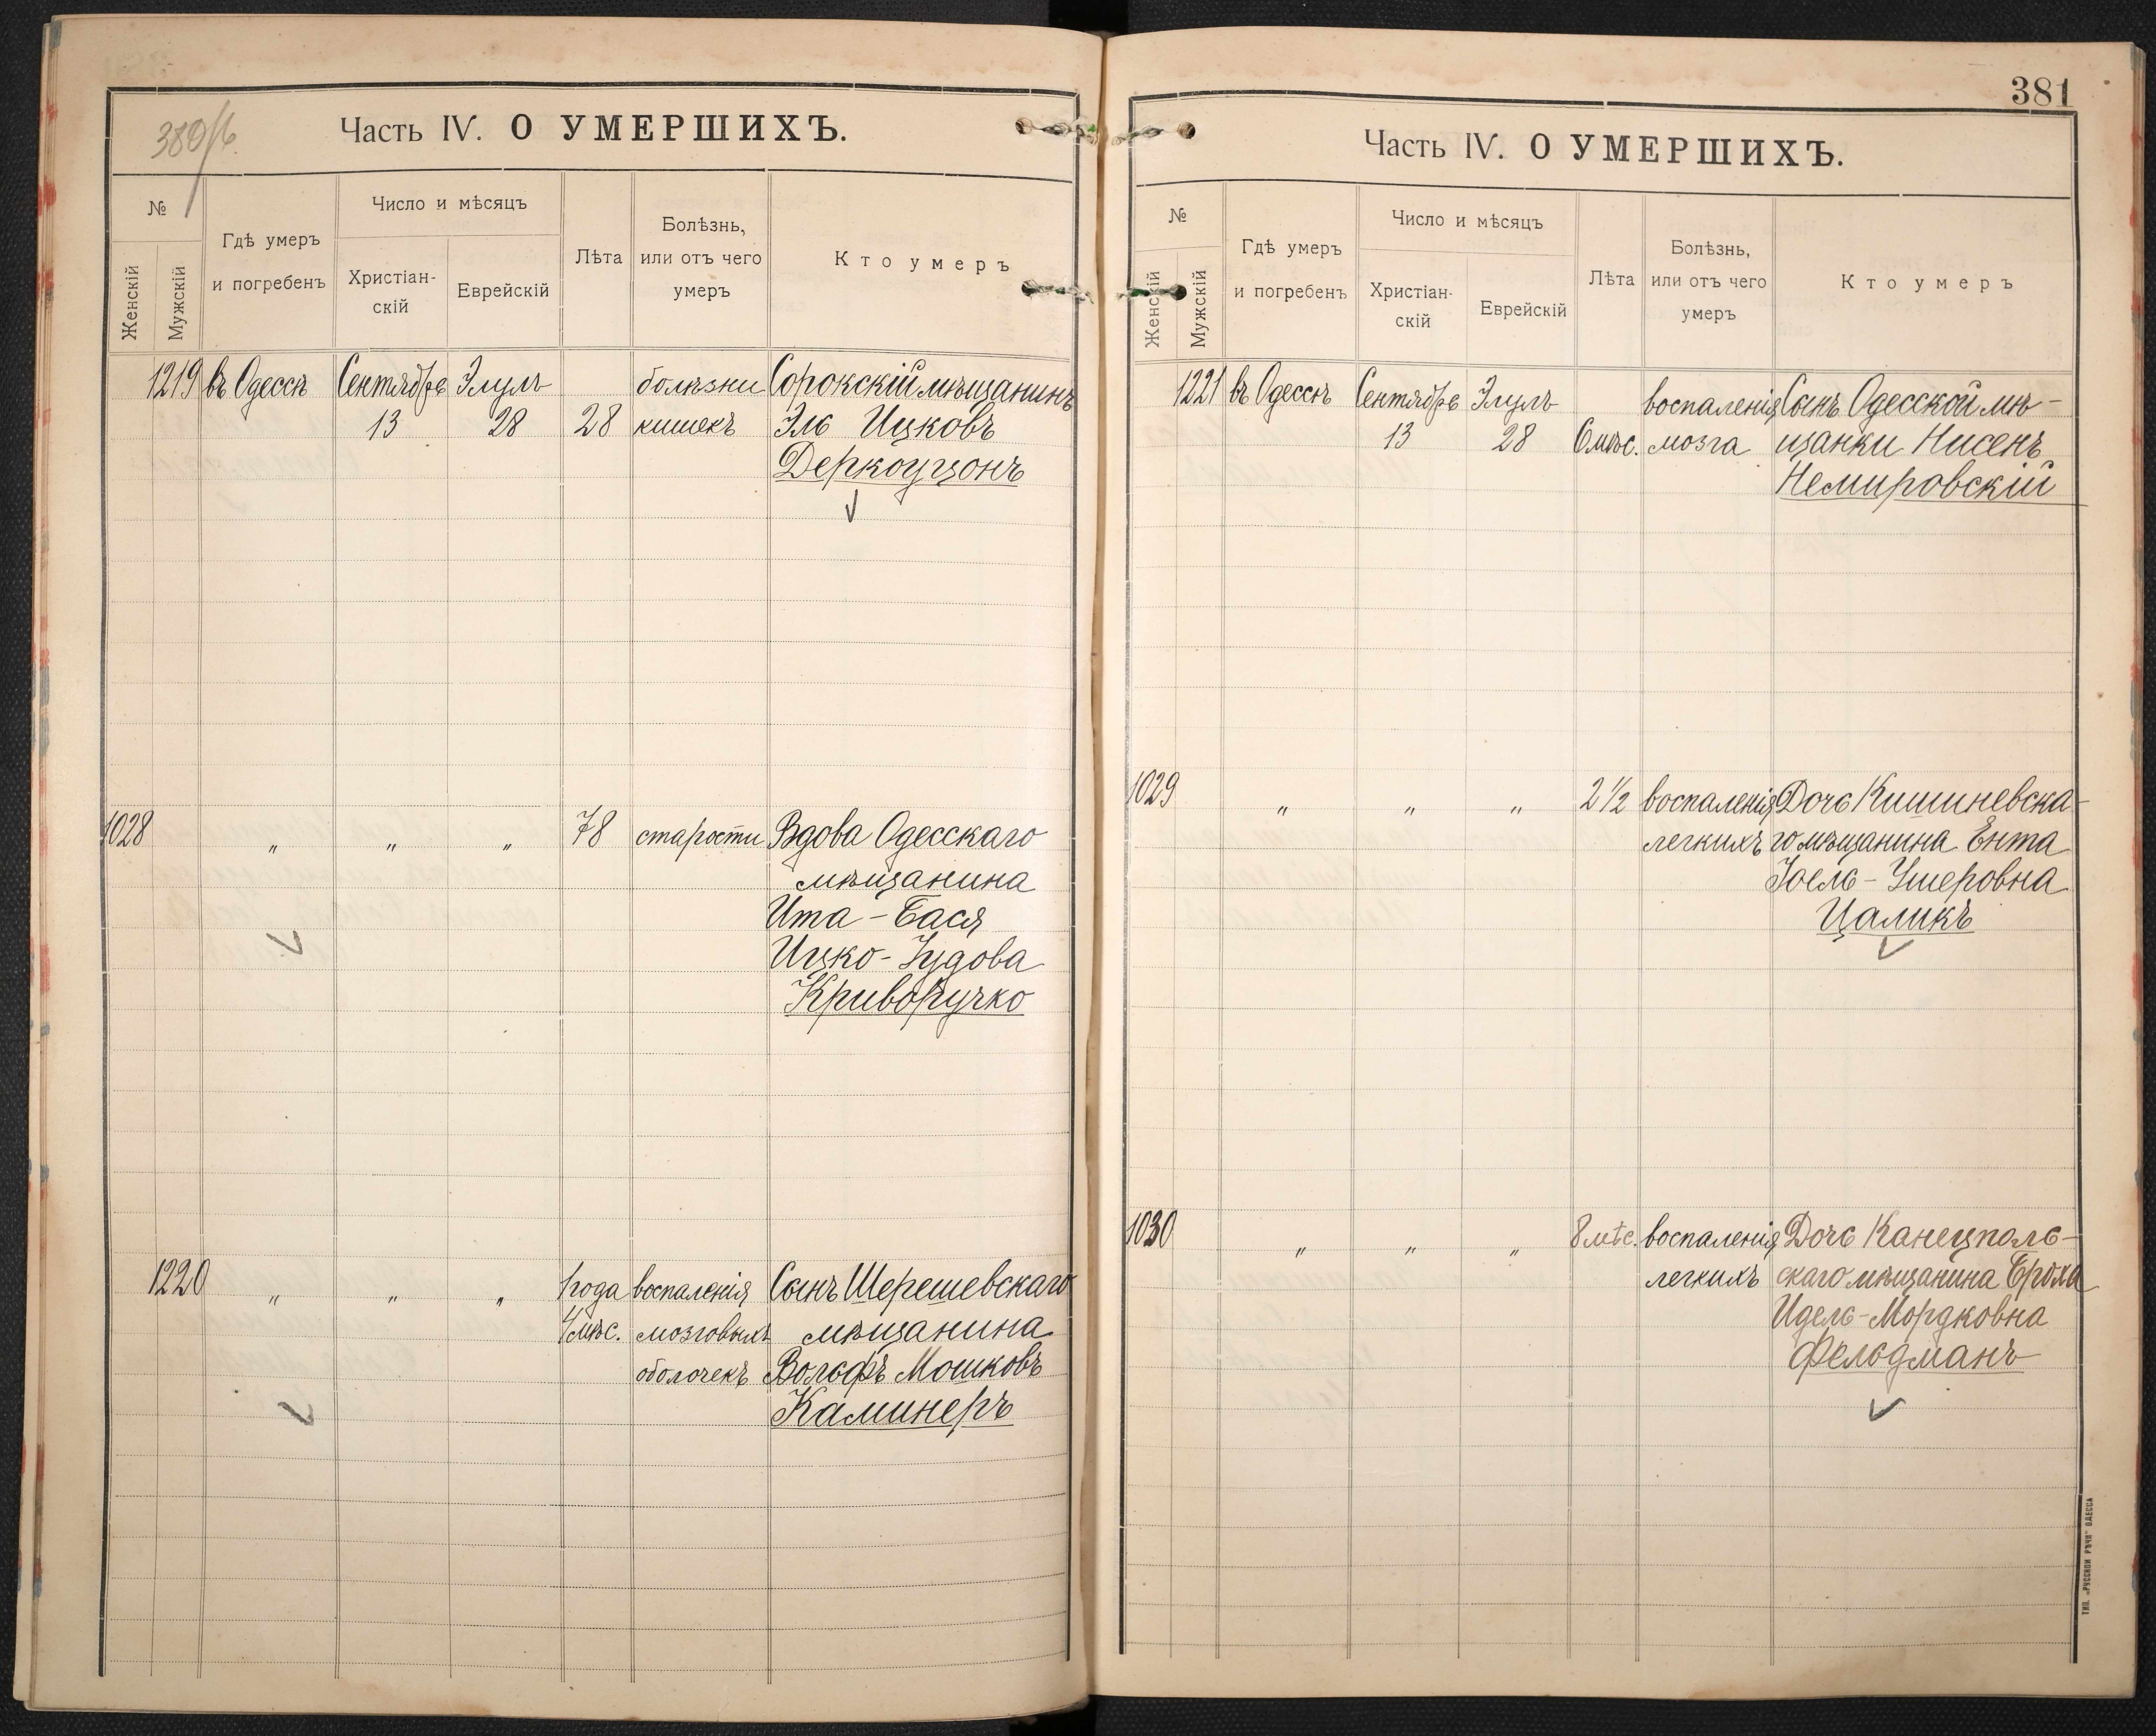 380/б
Часть IV. О УМЕРШИХЪ.
№
Женскій
Мужскій
Гдѣ умеръ
и погребенъ
Число и мѣсяцъ
Христіан-
скій
Еврейскій
Лѣта
Болѣзнь,
или отъ чего
умеръ
Кто умеръ
1219 въ Одессѣ Сентября Элулъ болѣзни Сорокскій мѣщанинъ
13 28 28 кишекъ Эль Ицковъ
Деркоуцонъ
1028 " " " 78 старости Вдова Одесскаго
мѣщанина
Ита-Бася
Ицко-Іудова
Криворучко
1220 " " " 1 года воспаленія Сынъ Шерешевскаго
мѣс. мозговыхъ мѣщанина
оболочекъ Вольфъ Мошковъ
Каминеръ
381
Часть IV. О УМЕРШИХЪ.
№
Женскій
Мужскій
Гдѣ умеръ
и погребенъ
Число и мѣсяцъ
Христіан-
скій
Еврейскій
Лѣта
Болѣзнь,
или отъ чего
умеръ
Кто умеръ
1221 въ Одессѣ Сентября Элулъ воспаленія Сынъ Одесской мѣ-
13 28 6 мѣс. мозга щанки Нисенъ
Немировскій
1029 " " " 2 1/2 воспаленія Дочь Кишиневска-
легкихъ го мѣщанина Ента
Іоель-Ушеровна
Цаликъ
1030 " " " 8 мѣс. воспаленія Дочь Канецполь-
легкихъ скаго мѣщанина Броха
Идель-Мордковна
Фельдманъ
ТИП. „РУССКОЙ РѢЧИ" ОДЕССА